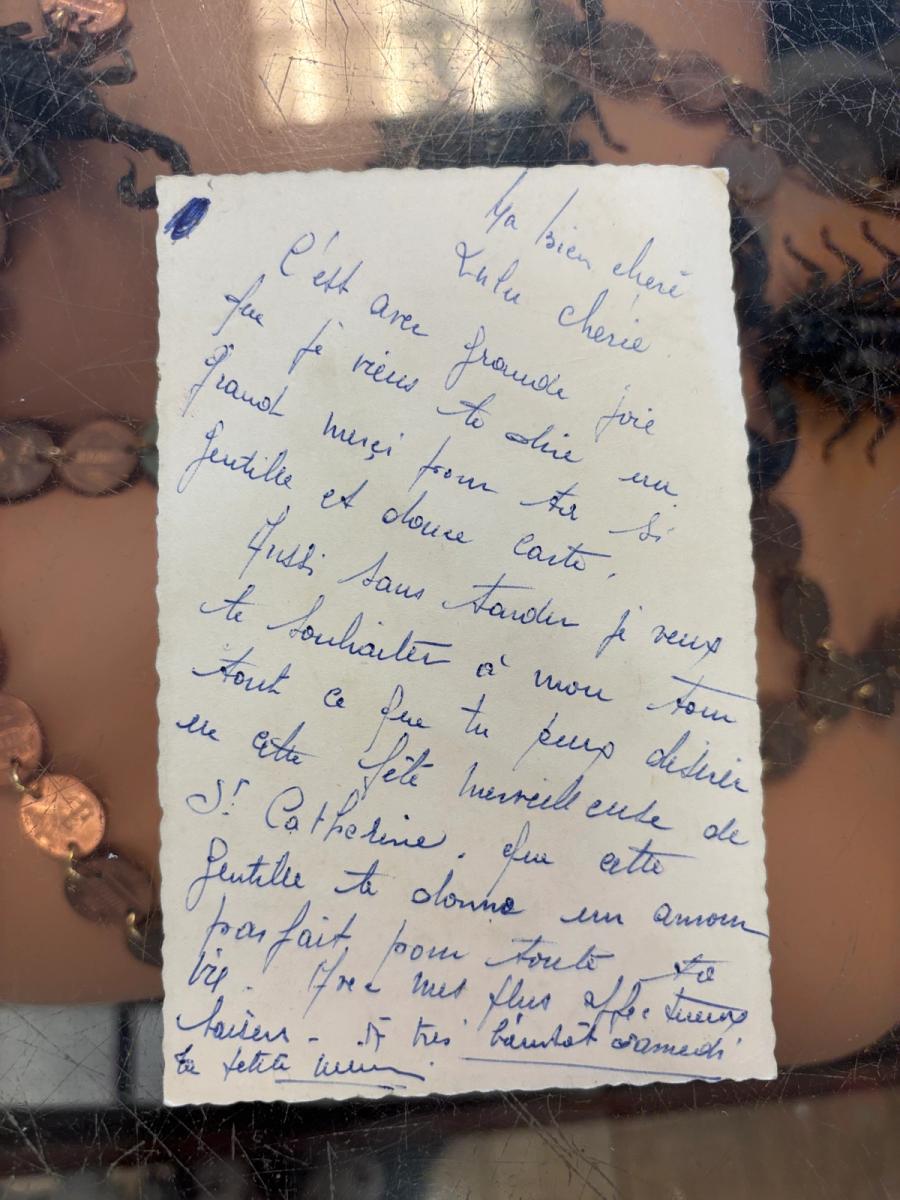 Ma bien cheré
Lulu chérie
C'est avec grande joie
que je viens te dire un
grand merçi pour ta si
gentille et douce carte.
Aussi sans tarder je veux
te souhaiter à mon tour
tout ce que tu peux désirer
en cette fête merveilleuse de
St Catherine. Que cette
gentille te donne un amour
parfait pour toute ta
vie. Avec mes plus affectueux
baisers - A très bientôt samedi
ta petite